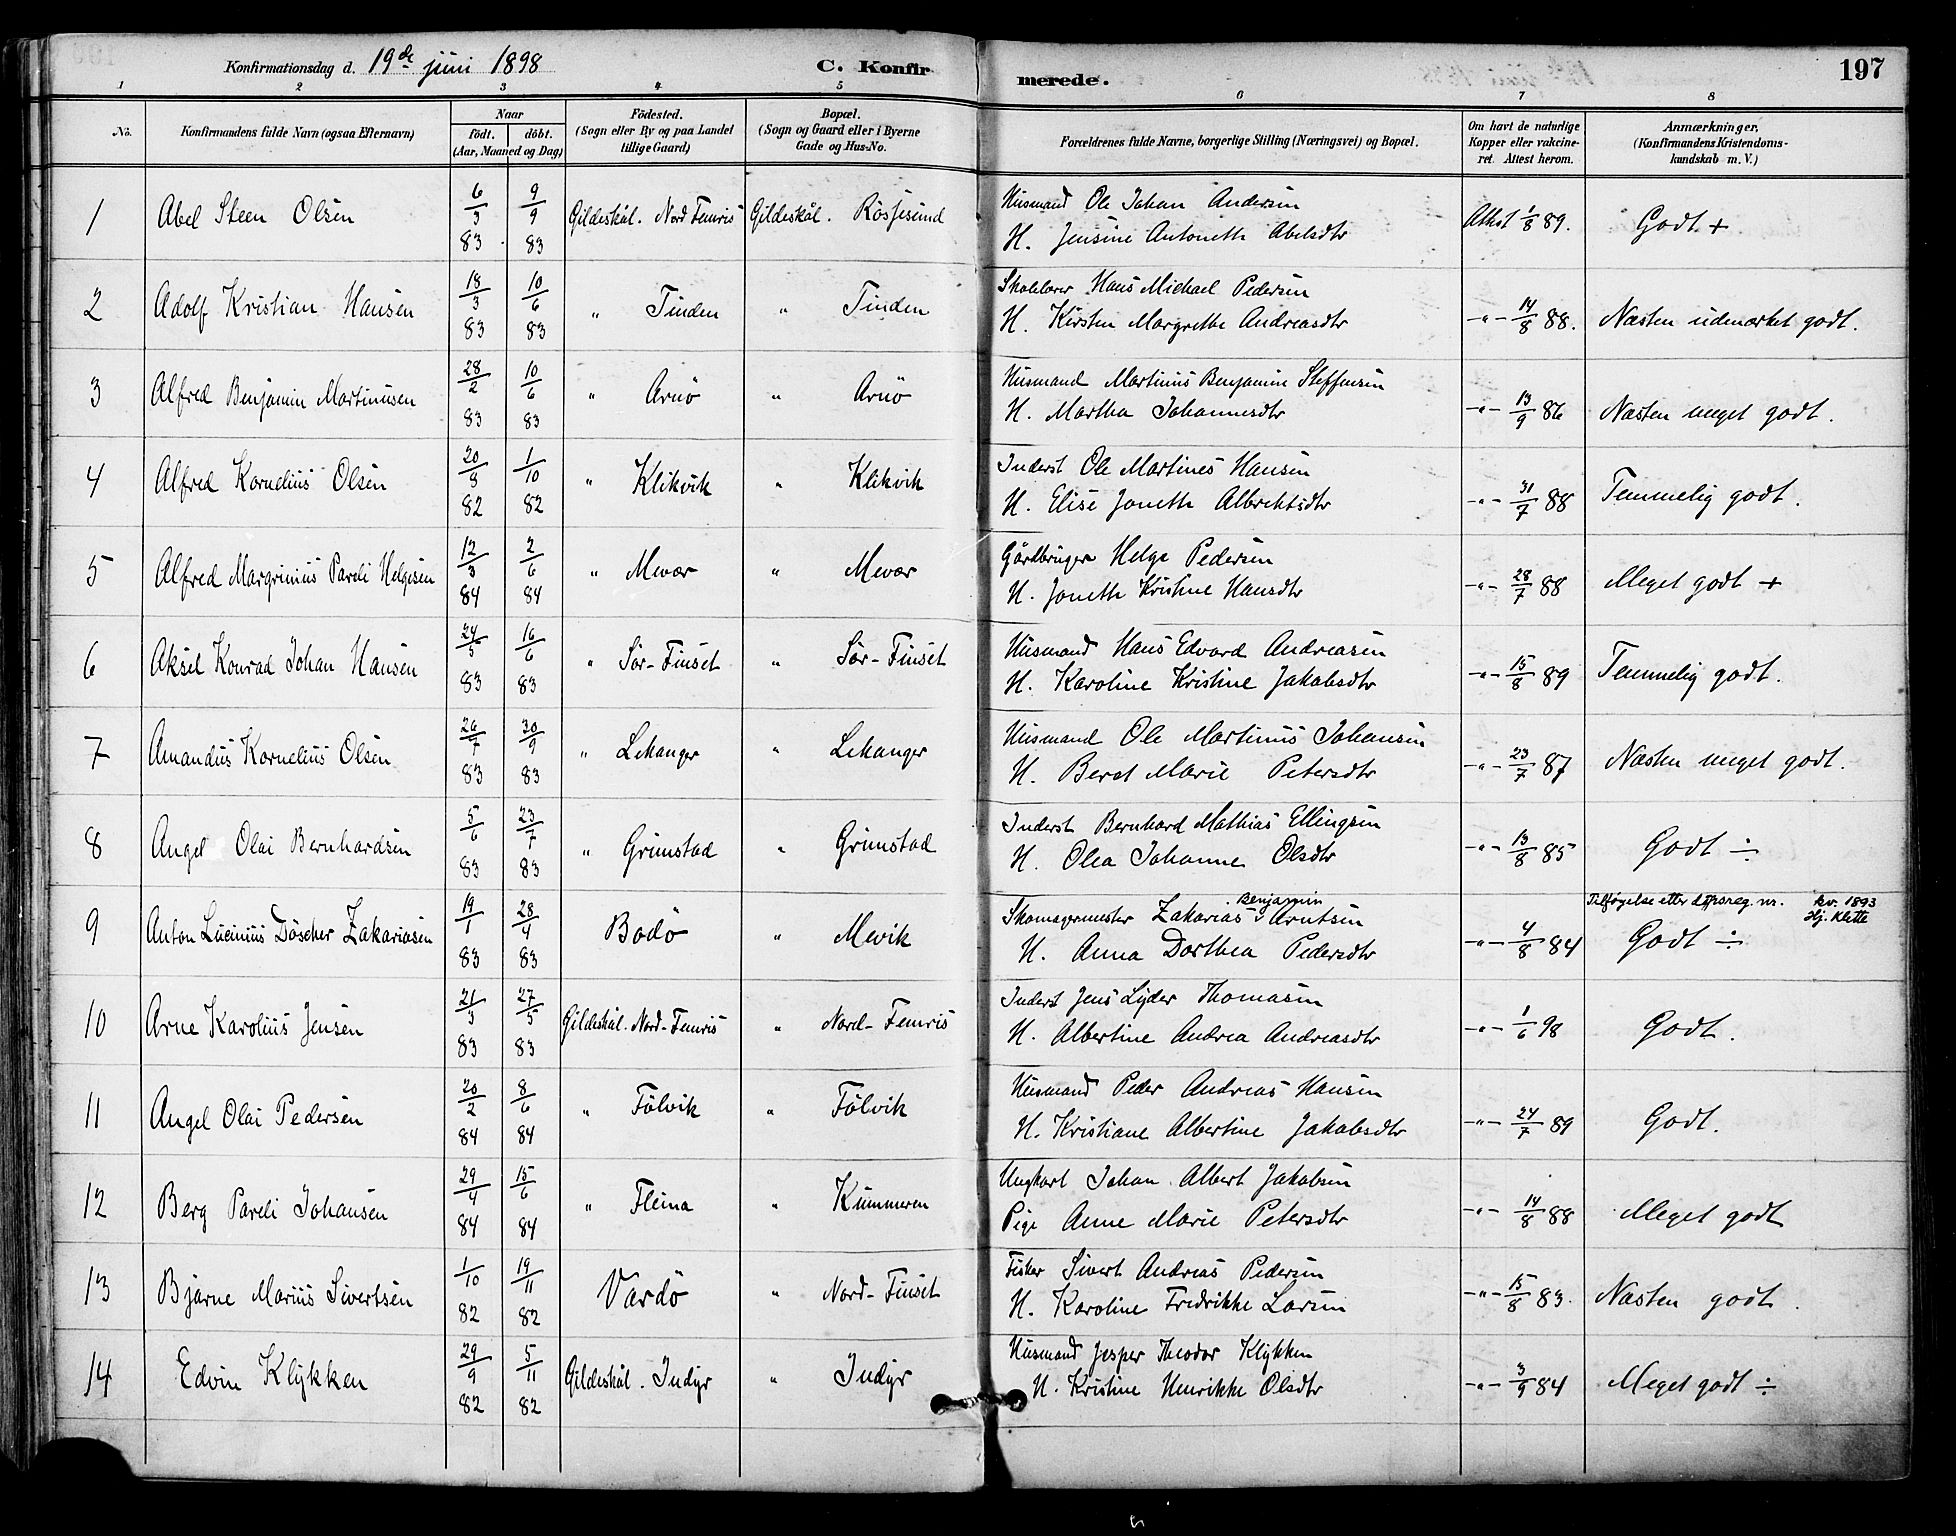 Konfirmationsdag d. 19de juni 1898 C. Konfirmerede. 197
1 2 3 4 5 6 7 8
No. Konfirmandens fulde Navn (ogsaa Efternavn) Naar födt. döbt. (Aar, Maaned og Dag) Födested. (Sogn eller By og paa Landet tillige Gaard) Bopæl. (Sogn og Gaard eller i Byerne Gade og Hus-No. Forældrenes fulde Navne, borgerlige Stilling (Næringsvei) og Bopæl. Om havt de naturlige Kopper eller vakcineret. Attest herom. Anmærkninger. (Konfirmandens Kristendomskundskab m. V.)
1 Abel Steen Olsen 6/3 83 9/9 83 Gildeskål. Nord Femris Gildeskål. Rösjesund Husmand Ole Johan Andersen
H. Jensine Antoneth Abelsdtr Attest 1/8 89. Godt +
2 Adolf Kristian Hansen 18/3 83 10/6 83 " Tinden " Tinden Skolelærer Hans Michael Pedersen
H. Kirsten Margrethe Andreasdtr -"- 14/8 88. Næsten udmærket godt.
3 Alfred Benjamin Martinusen 28/2 83 10/6 83 " Arnö " Arnö Husmand Martinus Benjamin Steffensen
H. Martha Johannesdtr -"- 13/9 86 Næsten meget godt.
4 Alfred Kornelius Olsen 20/8 82 1/10 82 " Klikvik " Klikvik Inderst Ole Martines Hansen
H. Elise Joneth Albrektsdtr -"- 31/7 88 Temmelig godt.
5 Alfred Margrinius Pareli Helgesen 12/3 84 2/6 84 " Mevær " Mevær Gårdbruger Helge Pedersen
H. Joneth Kristine Hansdtr -"- 28/7 88 Meget godt +
6 Aksel Konrad Johan Hansen 24/5 83 16/6 83 " Sör-Finset " Sör-Finset Husmand Hans Edvard Andreasen
H. Karoline Kristine Jakobsdtr -"- 15/8 89 Temmelig godt.
7 Amandus Kornelius Olsen 26/7 83 30/9 83 " Lekanger " Lekanger Husmand Ole Martinus Johansen
H. Beret Marie Petersdtr -"- 23/7 87 Næsten meget godt.
8 Angel Olai Bernhardsen 5/6 83 23/7 83 " Grimstad " Grimstad Inderst Bernhard Mathias Ellingsen
H. Olea Johanne Olsdtr -"- 13/8 85 Godt ÷
9 Anton Lucinius Döscher Zakariasen 19/1 83 28/4 83 Bodö " Mevik Skomagermester Zakarias Benjamin Arntsen
H. Anna Dorthea Pedersdtr -"- 4/8 84 Tilföyelse etter dåpsreg. nr. kv. 1893 Hj. Klette
Godt ÷
10 Arne Karolius Jensen 21/3 83 27/5 83 Gildeskål. Nord-Femris " Nord-Femris Inderst Jens Lyder Thomasen
H. Albertine Andrea Andreasdtr -"- 1/6 98 Godt.
11 Angel Olai Pedersen 20/2 84 8/6 84 " Fölvik " Fölvik Husmand Peder Andreas Hansen
H. Kristiane Albertine Jakobsdtr -"- 24/7 89 Godt.
12 Berg Pareli Johansen 29/4 84 15/6 84 " Fleina " Kummeren Ungkarl Johan Albert Jakobsen
Pige Anne Marie Petersdtr -"- 14/8 88 Meget godt
13 Bjarne Marius Sivertsen 1/10 82 19/11 82 Vardö " Nord-Finset Fisker Sivert Andreas Pedersen
H. Karoline Fredrikke Larsen -"- 15/8 83. Næsten godt.
14 Edvin Klykken 29/9 82 5/11 82 Gildeskål. Indyr " Indyr Husmand Jesper Theodor Klykken
H. Kristine Henrikke Olsdtr -"- 3/9 84 Meget godt ÷